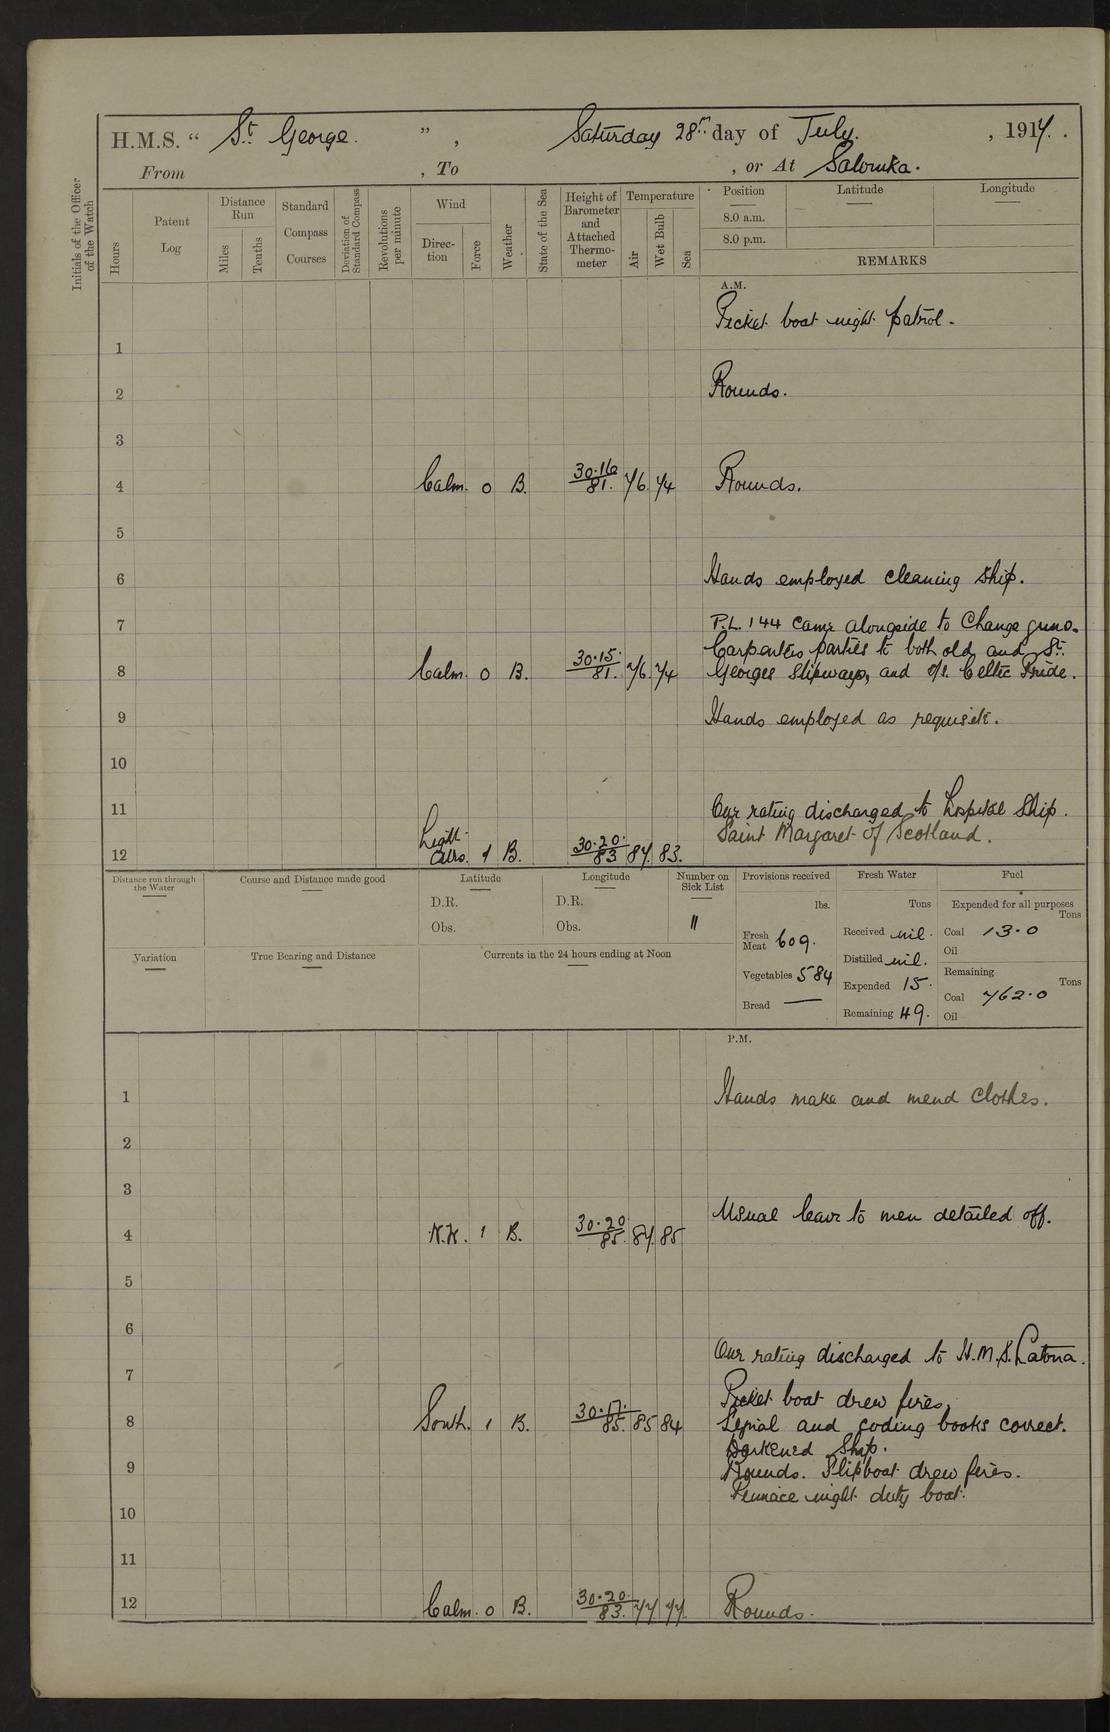 H.M.S. “ St George. ” , Saturday 28th day of July. , 1917.
From , To , or At Salonika.
Initials of the Officer of the Watch
Hours
Patent Log
Distance Run
Miles
Tenths
Standard Compass Courses
Deviation of Standard Compass
Revolutions per minute
Wind
Direction
Force
Weather
State of the Sea
Height of Barometer and Attached Thermometer
Temperature
Air
Wet Bulb
Sea
Position Latitude Longitude
8.0 a.m.
8.0 p.m.
REMARKS
A.M.
Picket boat night patrol.
1
2 Rounds.
3
4 Calm. 0 B. 30.16 81. 76. 74 Rounds.
5
6 Hands employed cleaning ship.
7 P.L. 144 came alongside to change guns.
Carpenters parties to both old and St.
8 Calm. 0 B. 30.15. 81. 76. 74 Georges Slipways, and s/s. Celtic Pride.
9 Hands employed as requisite.
10
11 One rating discharged to hospital ship.
Light Saint Margaret of Scotland.
12 airs. 1 B. 30.20. 83 87. 83.
Distance run through the Water
Course and Distance made good
Latitude
D.R.
Obs.
Longitude
D.R.
Obs.
Number on Sick List
11
Provisions received
lbs.
Fresh Meat 609.
Vegetables 584
Bread —
Fresh Water
Tons
Received nil.
Distilled nil.
Expended 15.
Remaining 49.
Fuel
Expended for all purposes
Tons
Coal 13.0
Oil
Remaining
Tons
Coal 762.0
Oil
Variation
True Bearing and Distance
Currents in the 24 hours ending at Noon
P.M.
1 Hands make and mend clothes.
2
3
Usual leave to men detailed off.
4 N.W. 1 B. 30.20 85. 87. 85
5
6
One rating discharged to H.M.S. Latona.
7
Picket boat drew fires.
8 South. 1 B. 30.17. 85. 85 84 Signal and coding books correct.
Darkened Ship.
9 Rounds. Slipboat drew fires.
Pinnace night duty boat.
10
11
12 Calm. 0 B. 30.20. 83. 77 77. Rounds.